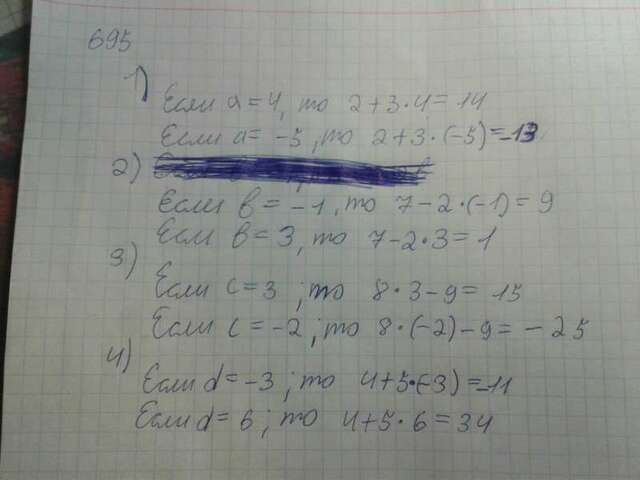 695
1) Если a = 4, то 2+3·4=14
Если a= -5, то 2+3·(-5)=-13
2)
Если b = -1, то 7-2·(-1) = 9
Если b = 3, то 7-2·3 = 1
3)
Если c=3; то 8·3-9= 15
Если c = -2; то 8·(-2)-9= -25
4)
Если d= -3; то 4+5·(-3)=-11
Если d= 6; то 4+5·6=34